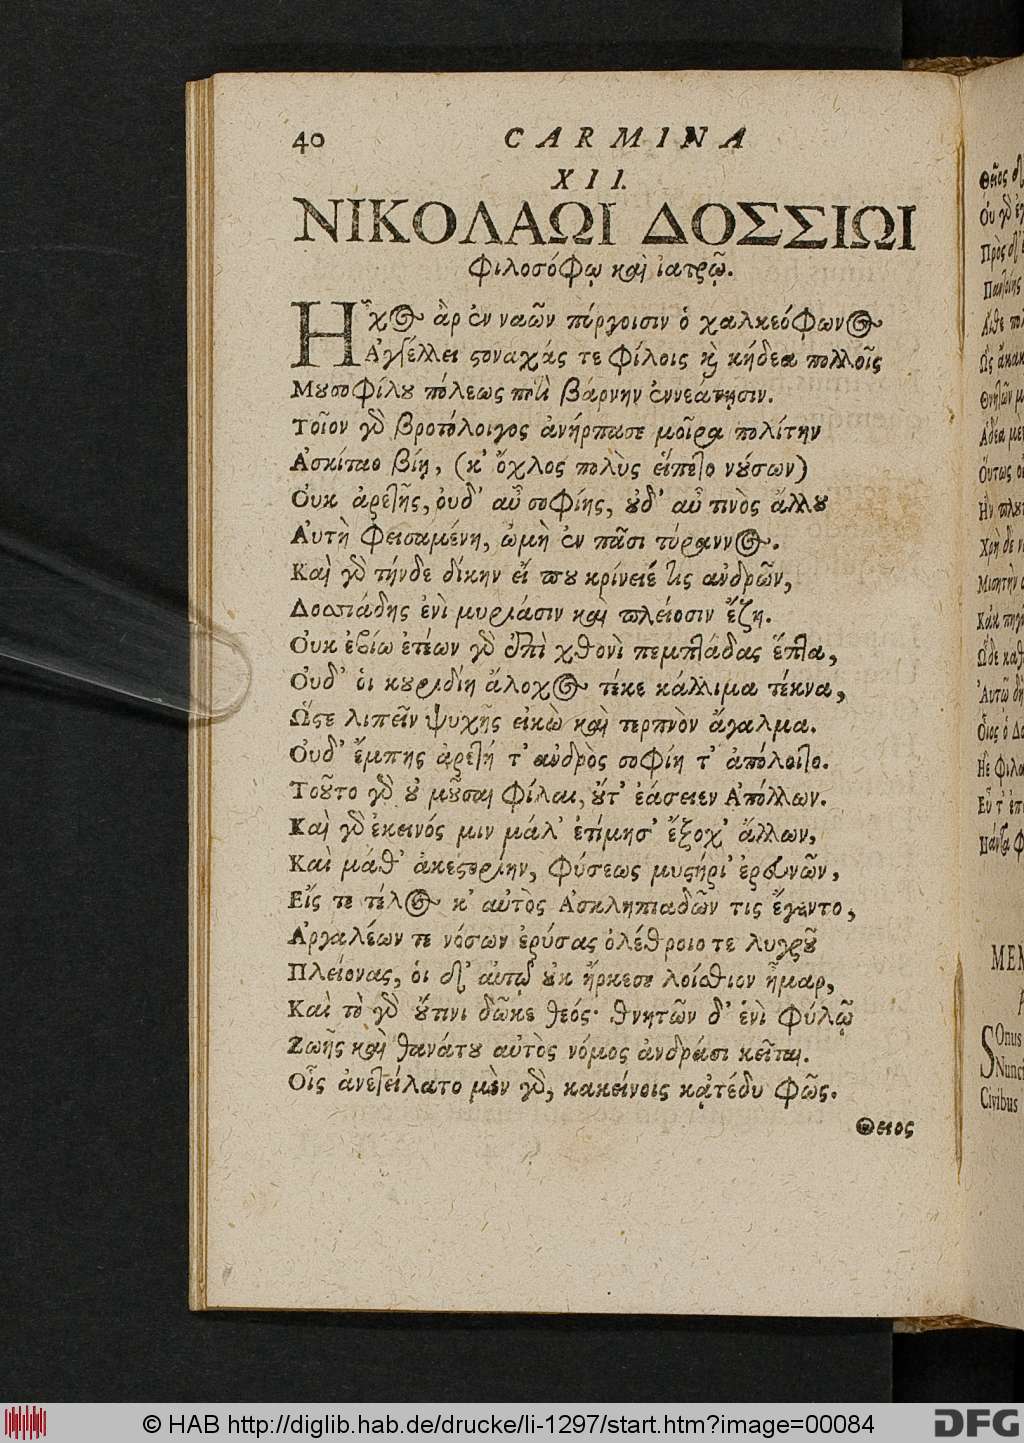 40 CARMINA
XII.
ΝΙΚΟΛΑΩΙ ΔΟΣΣΙΩΙ
Φιλοσόφῳ καὶ ἰατρῷ.
Ἦχος ἂρ ἐν ναῶν πύργοισιν ὁ χαλκεόφωνος
Ἀγγέλλει στοναχάς τε φίλοις καὶ κήδεα πολλοῖς
Μουσοφίλου πόλεως ποτὶ βάρνην ἐννεάτησιν.
Τοῖον γὰρ βροτόλοιγος ἀνήρπασε μοῖρα πολίτην
Ἀσκίταο βίῃ, (κ' ὄχλος πολὺς εἵπετο νούσων)
Οὐκ ἀρετῆς, οὐδ' αὖ σοφίης, οὐδ' αὖ τινὸς ἄλλου
Αὐτὴ φεισαμένη, ὠμὴ ἐν πᾶσι τύραννος.
Καὶ γὰρ τήνδε δίκην εἴ που κρίνειέ τις ἀνδρῶν,
Δοσσιάδης ἐνὶ μυριάσιν καὶ πλείοσιν ἔζη.
Οὐκ ἐβίω ἐτέων γὰρ ἐπὶ χθονὶ πεμπτάδας ἕπτα,
Οὐδ' οἱ κουριδίη ἄλοχος τέκε κάλλιμα τέκνα,
Ὥστε λιπεῖν ψυχῆς εἰκὼ καὶ τερπνὸν ἄγαλμα.
Οὐδ' ἔμπης ἀρετή τ' ἀνδρὸς σοφίη τ' ἀπόλοιτο.
Τοῦτο γὰρ οὐ μοῦσαι φίλαι, οὔτ' ἐάσειεν Ἀπόλλων.
Καὶ γὰρ ἐκεινός μιν μάλ' ἐτίμησ' ἔξοχ' ἄλλων,
Καὶ μάθ' ἀκεστορίην, φύσεως μυστήρι' ἐρευνῶν,
Εἴς τε τέλος κ' αὐτὸς Ἀσκληπιαδῶν τις ἔγεντο,
Ἀργαλέων τε νόσων ἐρύσας ὀλέθροιο τε λυγροῦ
Πλείονας, οἱ δ' αὐτῷ οὐκ ἤρκεσε λοίσθιον ἦμαρ,
Καὶ τὸ γὰρ οὔτινι δῶκε θεός· θνητῶν δ' ἐνὶ φύλῳ
Ζωῆς καὶ θανάτου αὐτὸς νόμος ἀνδράσι κεῖται.
Οἷς ἀνετείλατο μὲν γὰρ, κακείνοις κᾀτέδυ φῶς.
Θειος
© HAB http://diglib.hab.de/drucke/li-1297/start.htm?image=00084
DFG